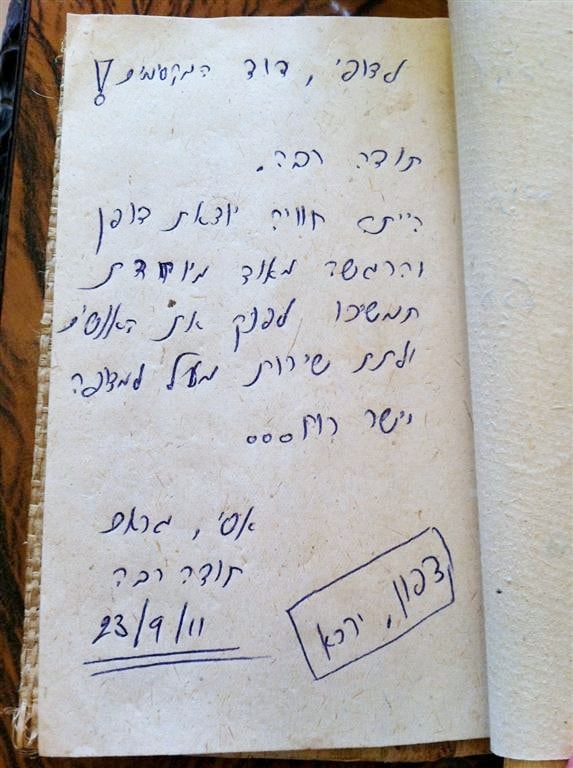 לצופי, דוד המקסמים!
תודה רבה.
היית חוויה יוצאת דופן
והרגשה מאוד מיוחדת
תמשיכו לפנק את האנשים
ולתת שירות מעל למצופה
יישר כוח...
אסי,
תודה רבה
23/9/11
צפון, ירכא